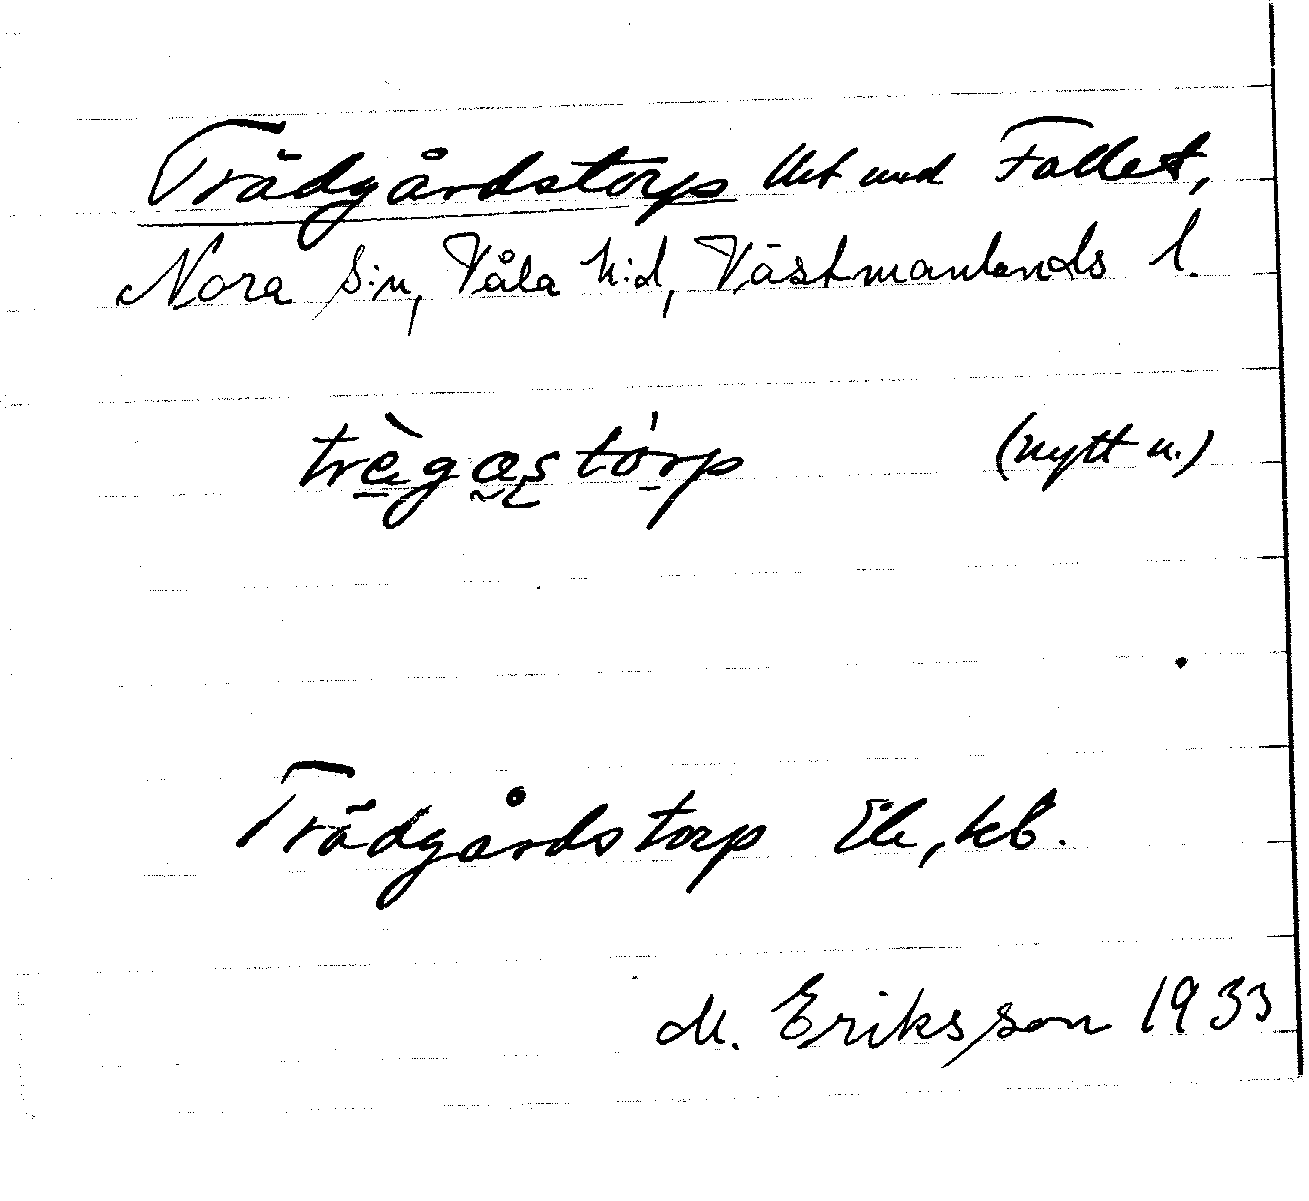 Trädgårdstorp lht und Fallet,
Nora s:n, Våla h:d, Västmanlands l.
trègastórp (nytt n.)
Trädgårdstorp Ek, kb.
M. Eriksson 1933